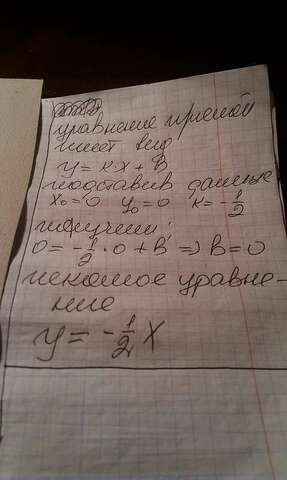 уравнение прямой
имеет вид
y = k·x + B
подставив данные
x₀ = 0 y₀ = 0 k = -1/2
получим:
0 = -1/2 · 0 + B ⇒ B = 0
искомое уравне-
ние
y = -1/2 x